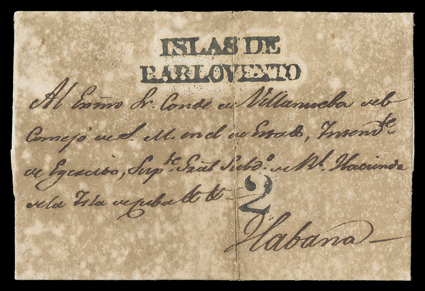 ISLAS DE
BARLOVENTO
Al Exmo Sr. Conde de Villanueba del
Consejo de S. M. en el de Estado, Intend.te
de Egercito, Sup.te Gral Subd.o de Rl. Hacienda
de la Isla de Cuba &c &c
2
Habana